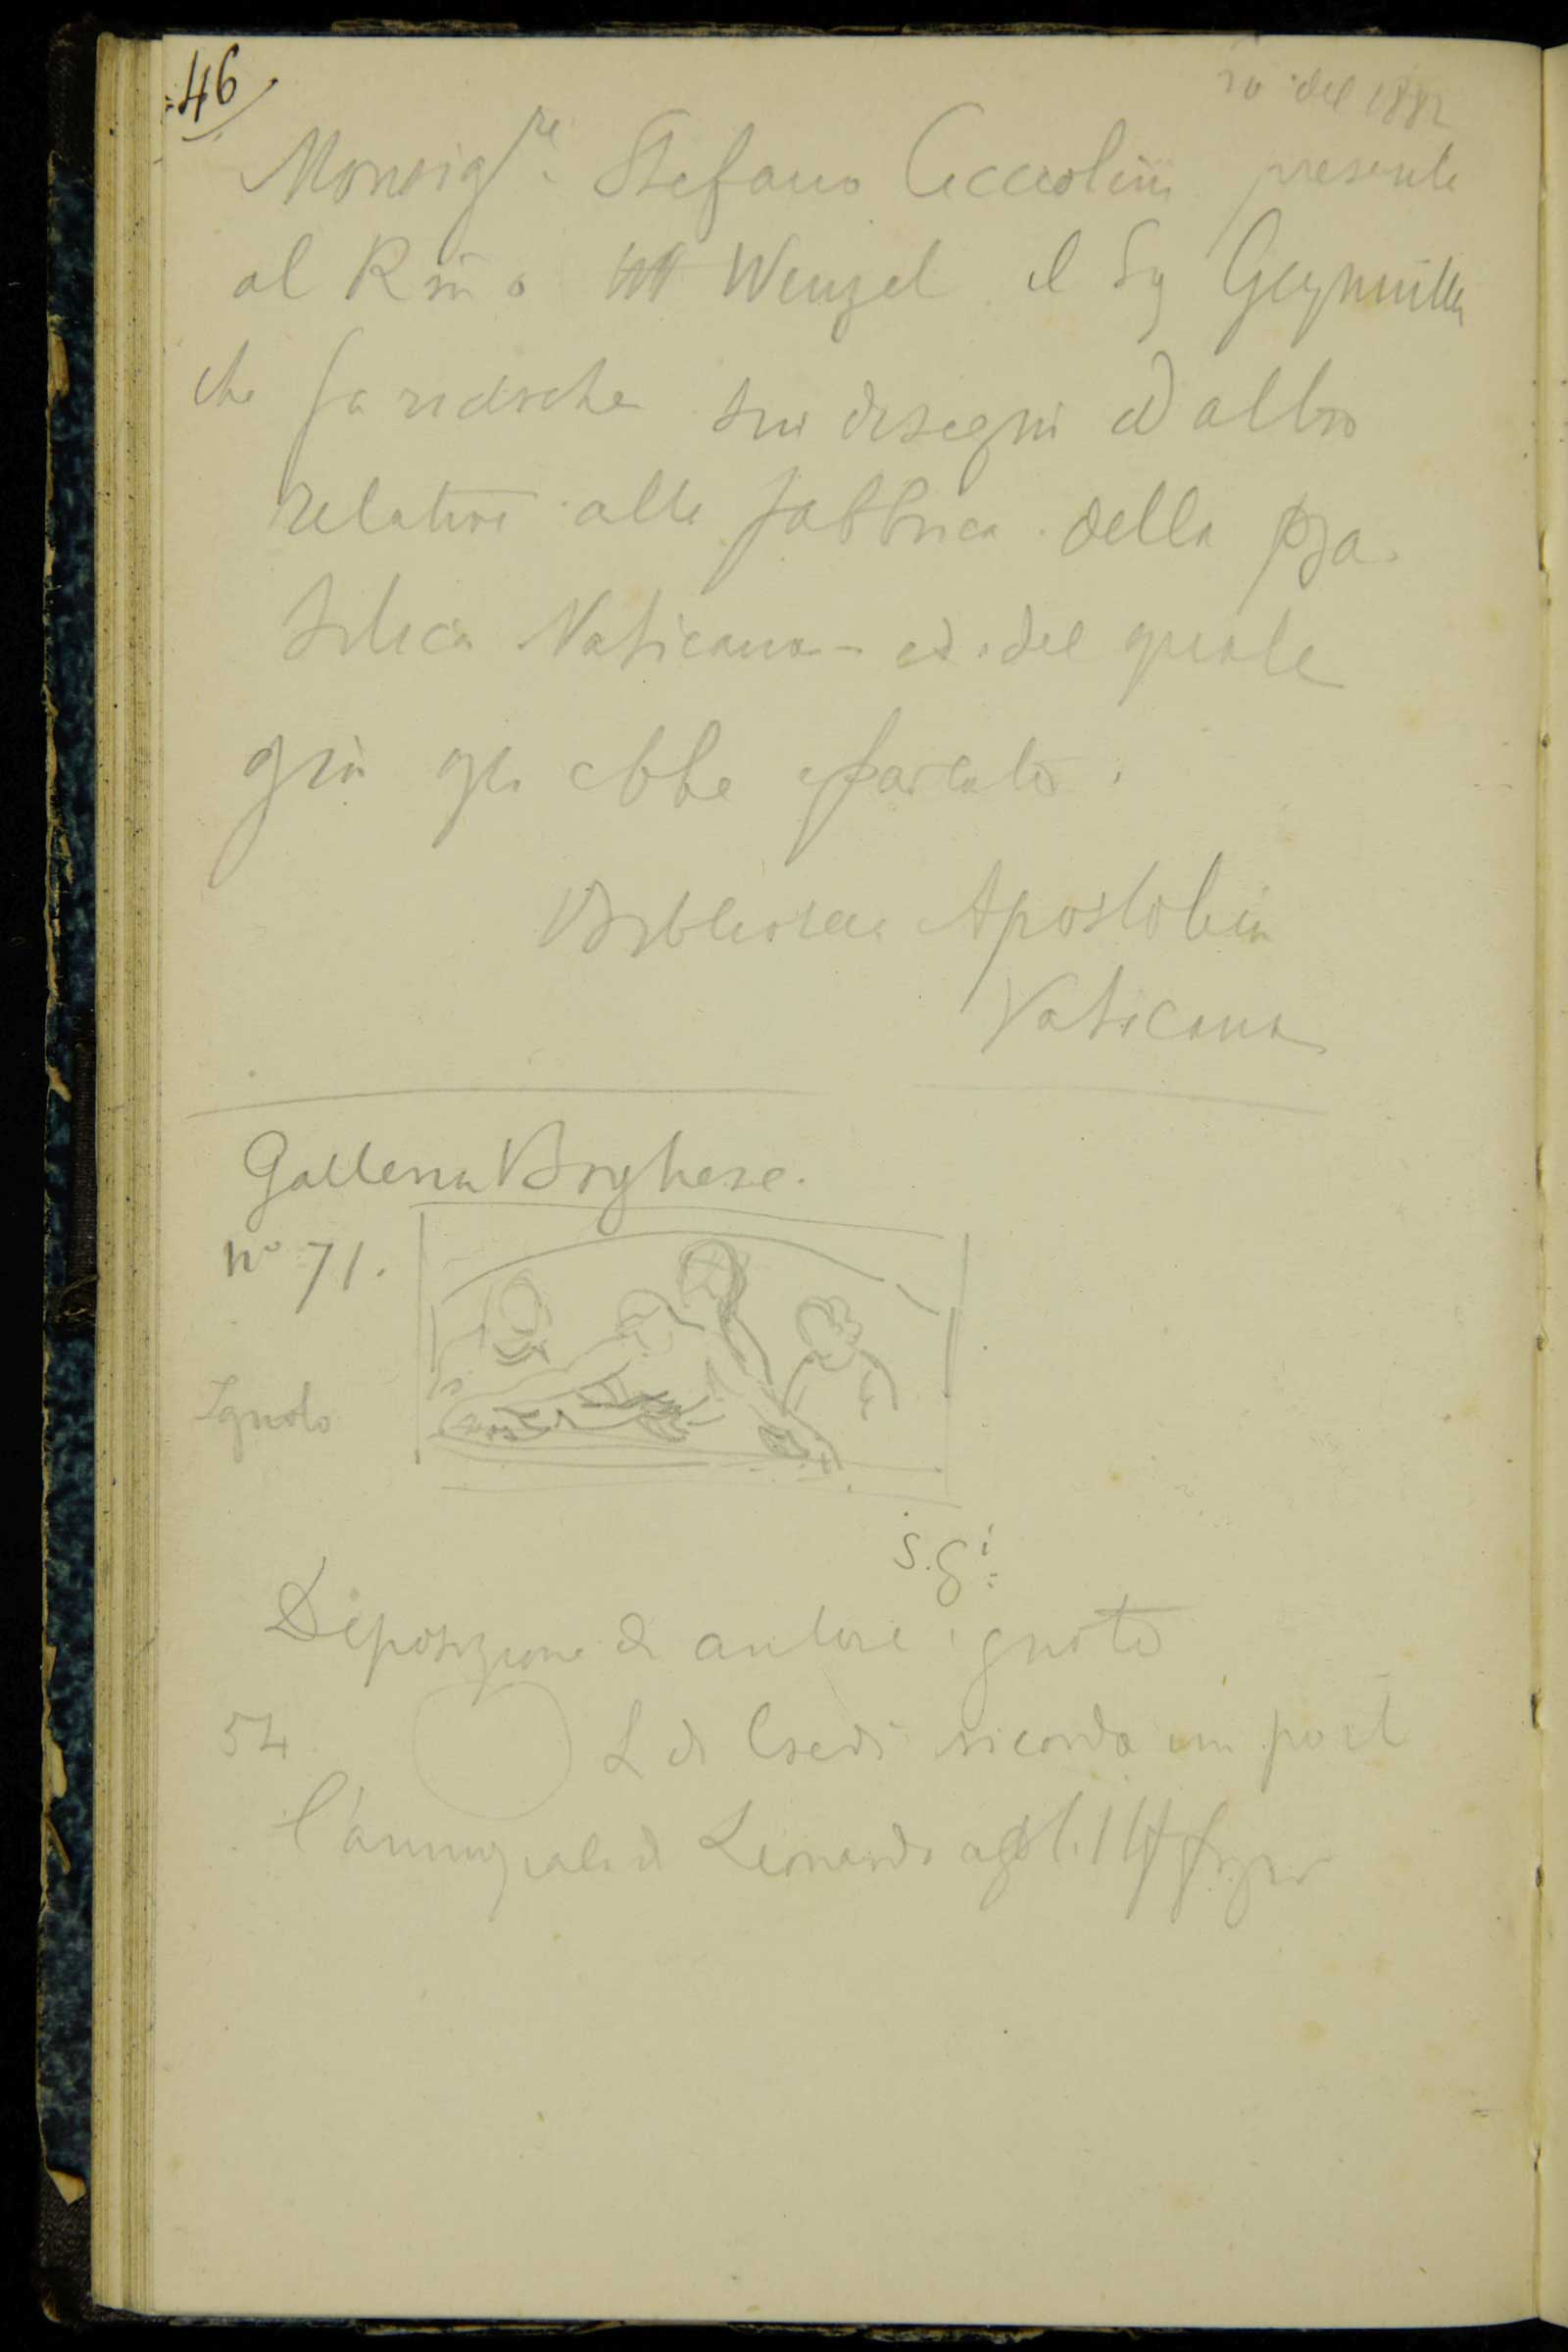 46
del 1882
Monsig.re Stefano Ciccolini presenta
al Rmo Wenzel il Sig Geymüller
che fa ricerche sui disegni ed altro
relativi alla fabbrica della Ba
silica Vaticana - ed del quale
già gli ebbe parlato.
Biblioteca Apostolica
Vaticana
Galleria Borghese.
No 71.
Ignoto
S.G.
Deposizione di autore ignoto
54 L di Credi ricorda un po il
di Leonardo